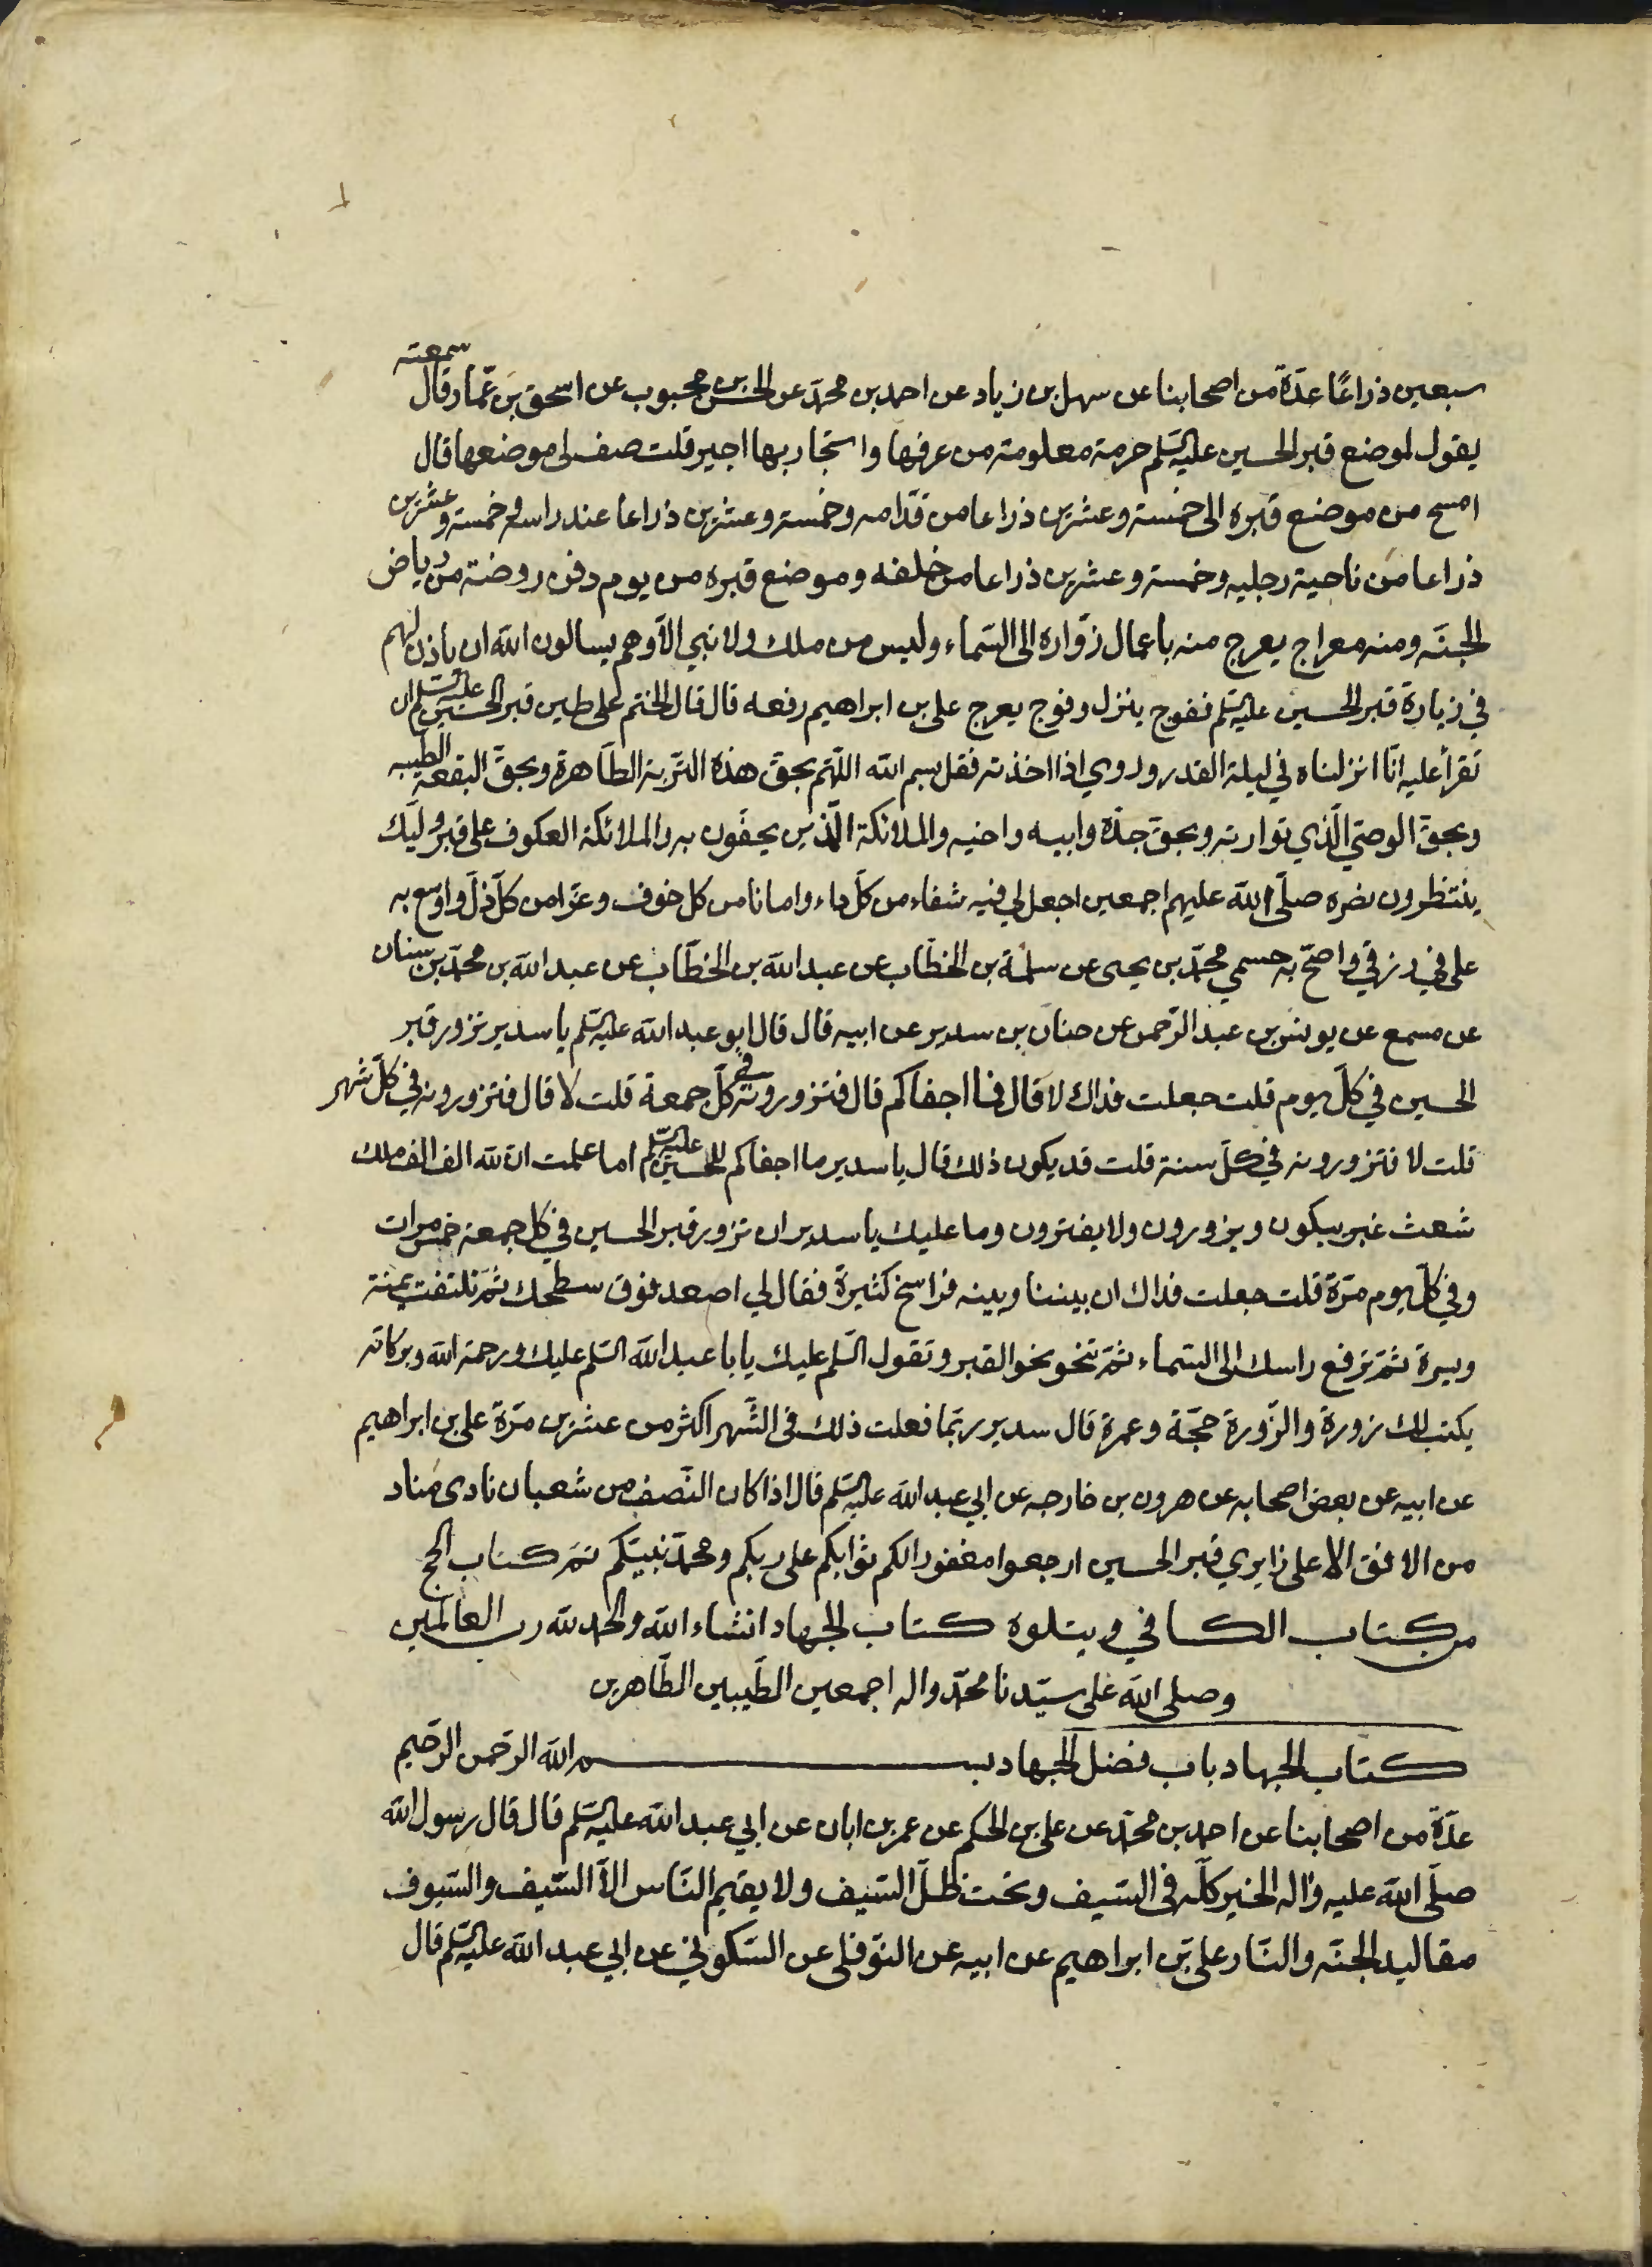 سبعين ذراعًا عدّة من اصحابنا عن سهل بن زياد عن احمد بن محمّد عن الحسن بن محبوب عن اسحق بن عمّار قال سمعته
يقول لموضع قبر الحسين عليه السّلم حرمة معلومة من عرفها واستجار بها اجير قلت صف لي موضعها قال
امسح من موضع قبره الى خمسة وعشرين ذراعا من قدّامه وخمسة وعشرين ذراعا عند راسه وخمسة وعشرين
ذراعا من ناحية رجليه وخمسة وعشرين ذراعا من خلفه وموضع قبره من يوم دفن روضة من رياض
الجنّه ومنه معراج يعرج منه باعمال زوّاره الى السّماء وليس من ملك ولا نبي الّا وهم يسالون الله ان ياذن لهم
في زيارة قبر الحسين عليه السّلم ففوج ينزل وفوج يعرج علي بن ابراهيم رفعه قال قال الختم على طين قبر الحسين عليه السّلم ان
تقرأ عليه انّا انزلناه في ليلة القدر وروي اذا اخذته فقل بسم الله اللّهم بحق هذه التربة الطّاهرة وبحقّ البقعه الطيبه
وبحقّ الوصيّ الّذي تواريه وبحقّ جدّه وابيه واخيه والملائكة الّذين يحفّون به والملائكة العكوف على قبر وليّك
ينتظرون نصره صلّى الله عليهم اجمعين اجعل لي فيه شفاء من كلّ داء وامانا من كل خوف وعزّا من كلّ ذلّ واوسع به
علي في رزقي واصحّ به جسمي محمّد بن يحيى عن سلمة بن الخطّاب عن عبد الله بن الخطّاب عن عبد الله بن محمّد بن سنان
عن مسمع عن يونس بن عبد الرّحمن عن حنان بن سدير عن ابيه قال قال ابو عبد الله عليه السّلم يا سدير تزور قبر
الحسين في كلّ يوم قلت جعلت فداك لا قال فما اجفاكم قال فتزورونه في كلّ جمعة قلت لا قال فتزورونه في كلّ شهر
قلت لا فتزورونه في كلّ سنة قلت قد يكون ذلك قال يا سدير ما اجفاكم للحسين عليه السّلم اما علمت انّ لله الف الف ملك
شعث غبر يبكون ويزورون ولا يفترون وما عليك يا سدير ان تزور قبر الحسين في كل جمعة خمس مرات
وفي كلّ يوم مرّة قلت جعلت فداك ان بيننا وبينه فراسخ كثيرة فقال لي اصعد فوق سطحك ثمّ تلتفت يمنة
ويسرة ثمّ ترفع راسك الى السّماء ثمّ تنحو نحو القبر وتقول السّلم عليك يابا عبد الله السّلم عليك ورحمة الله وبركاته
يكتب لك زورة والزّورة حجّة وعمرة قال سدير ربّما فعلت ذلك في الشّهر اكثر من عشرين مرّة علي بن ابراهيم
عن ابيه عن بعض اصحابه عن هرون بن خارجه عن ابي عبد الله عليه السّلم قال اذا كان النّصف من شعبان نادى مناد
من الافق الاعلى زايري قبر الحسين ارجعوا مغفورا لكم ثوابكم على ربكم ومحمّد نبيّكم تمّ كتاب الحج
من كتاب الكافي ويتلوه كتاب الجهاد انشاء الله والحمد لله رب العالمين
وصلى الله على سيّدنا محمّد واله اجمعين الطّيبين الطّاهرين
كتاب الجهاد باب فضل الجهاد بسم الله الرّحمن الرّحيم
عدّة من اصحابنا عن احمد بن محمّد عن علي بن الحكم عن عمر بن ابان عن ابي عبد الله عليه السّلم قال قال رسول الله
صلّى الله عليه واله الخير كلّه في السّيف وتحت ظلّ السّيف ولا يقيم النّاس الّا السّيف والسّيوف
مقاليد الجنّه والنّار علي بن ابراهيم عن ابيه عن النّوفلي عن السّكوني عن ابي عبد الله عليه السّلم قال